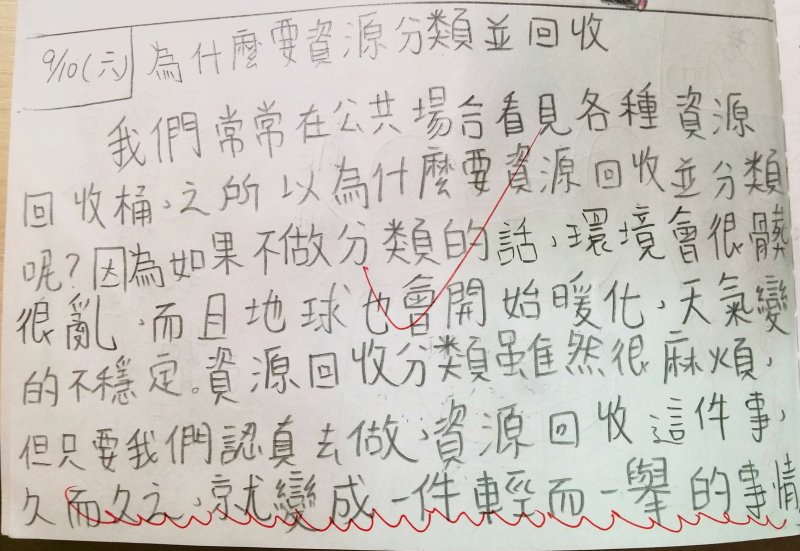 9/10(六) 為什麼要資源分類並回收
我們常常在公共場合看見各種資源
回收桶,之所以為什麼要資源回收並分類
呢?因為如果不做分類的話,環境會很髒
很亂,而且地球也會開始暖化,天氣變
的不穩定。資源回收分類雖然很麻煩,
但只要我們認真去做,資源回收這件事,
久而久之,就變成一件輕而一舉的事情